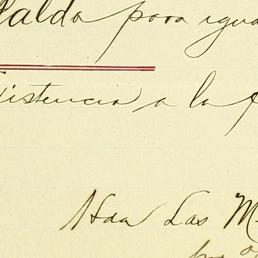 Saldo para igua
xistencia a la f
Hda Las M